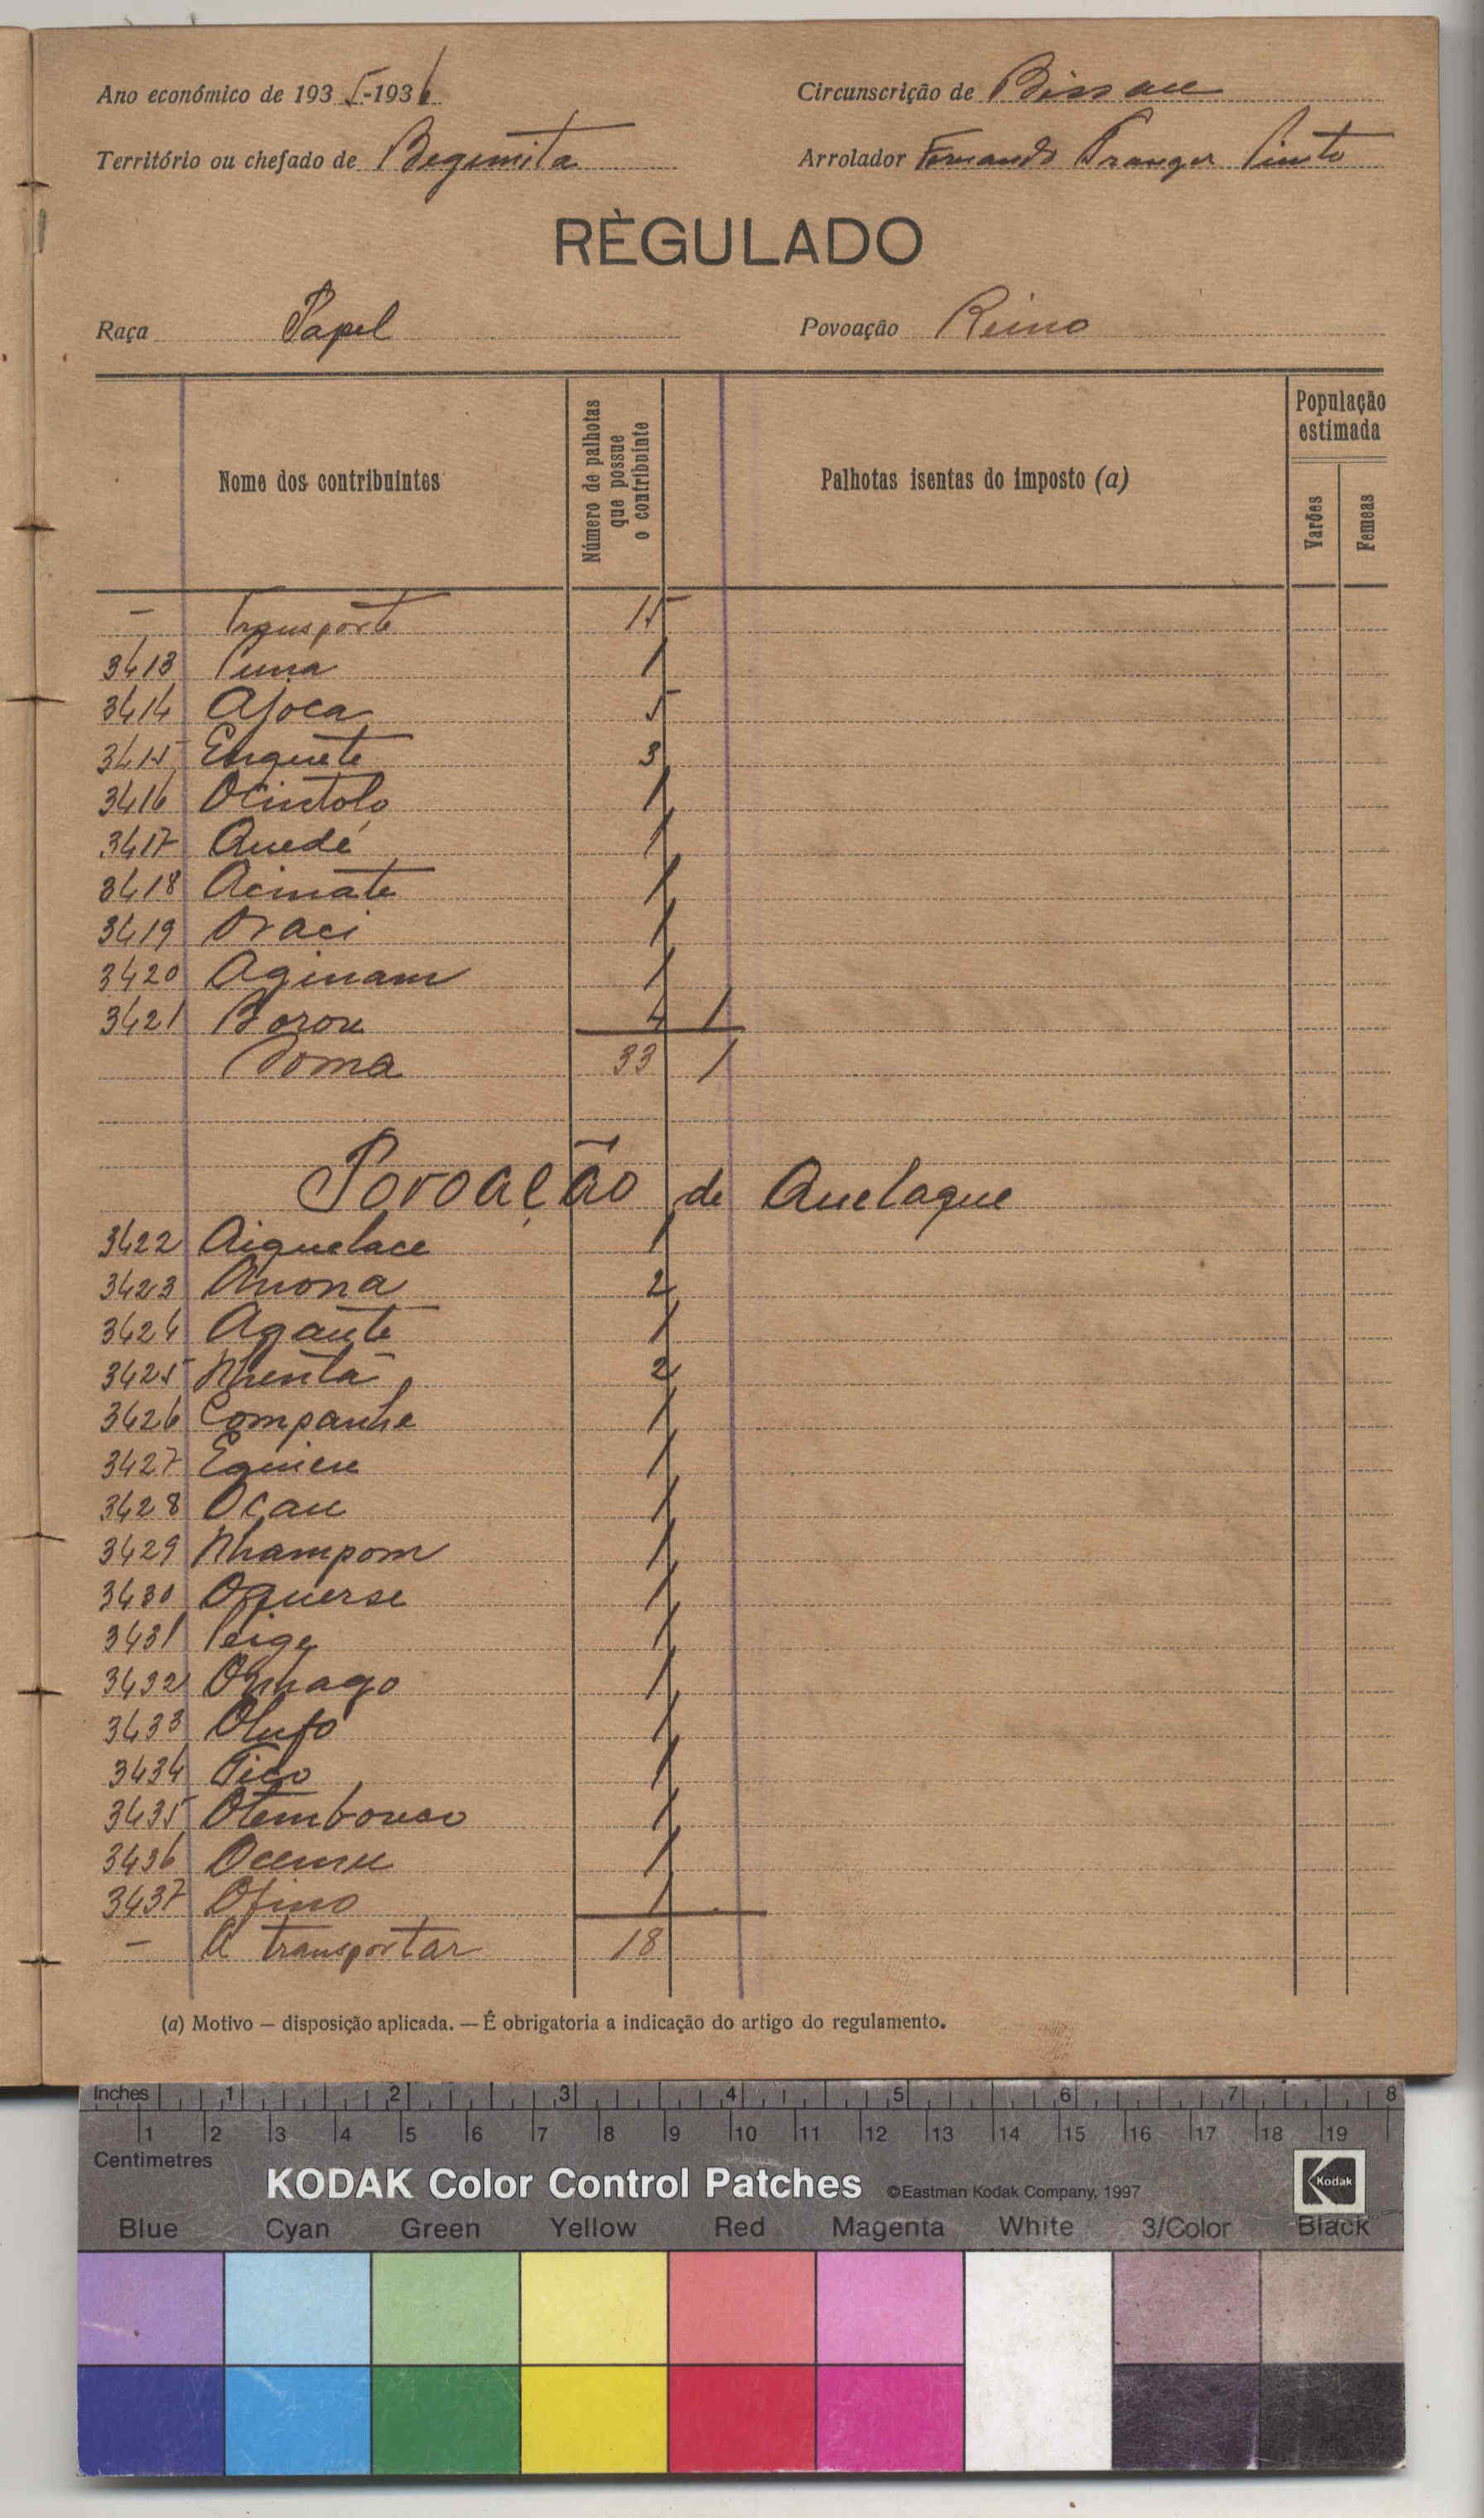 Ano económico de 1935-1936 Circunscrição de Bissau
Território ou chefado de Begimita Arrolador Fernando Pranger Pinto
RÈGULADO
Raça Papel Povoação Reino
Nome dos contribuintes
Número de palhotas que possue o contribuinte
Palhotas isentas do imposto (a)
População estimada
Varões
Femeas
- Transporte 15
3413 Puna 1
3414 Ajoca 5
3415 Enquete 3
3416 Ocintolo 1
3417 Quedé 1
3418 Acinate 1
3419 Oraci 1
3420 Aginam 1
3421 Borou 4 1
Soma 33 1
Povoação de Quelaque
3422 Aiquelace 1
3423 Anona 2
3424 Agante 1
3425 Nhenta 2
3426 Companhe 1
3427 1
3428 Ocau 1
3429 Nhampom 1
3430 Oquerse 1
3431 Peige 1
3432 Onhago 1
3433 Olufo 1
3434 Tico 1
3435 1
3436 1
3437 Ofino 1
- A transportar 18
(a) Motivo — disposição aplicada. — É obrigatoria a indicação do artigo do regulamento.
Inches 1 2 3 4 5 6 7 8
1 2 3 4 5 6 7 8 9 10 11 12 13 14 15 16 17 18 19
Centimetres
KODAK Color Control Patches ©Eastman Kodak Company, 1997 Kodak
Blue Cyan Green Yellow Red Magenta White 3/Color Black